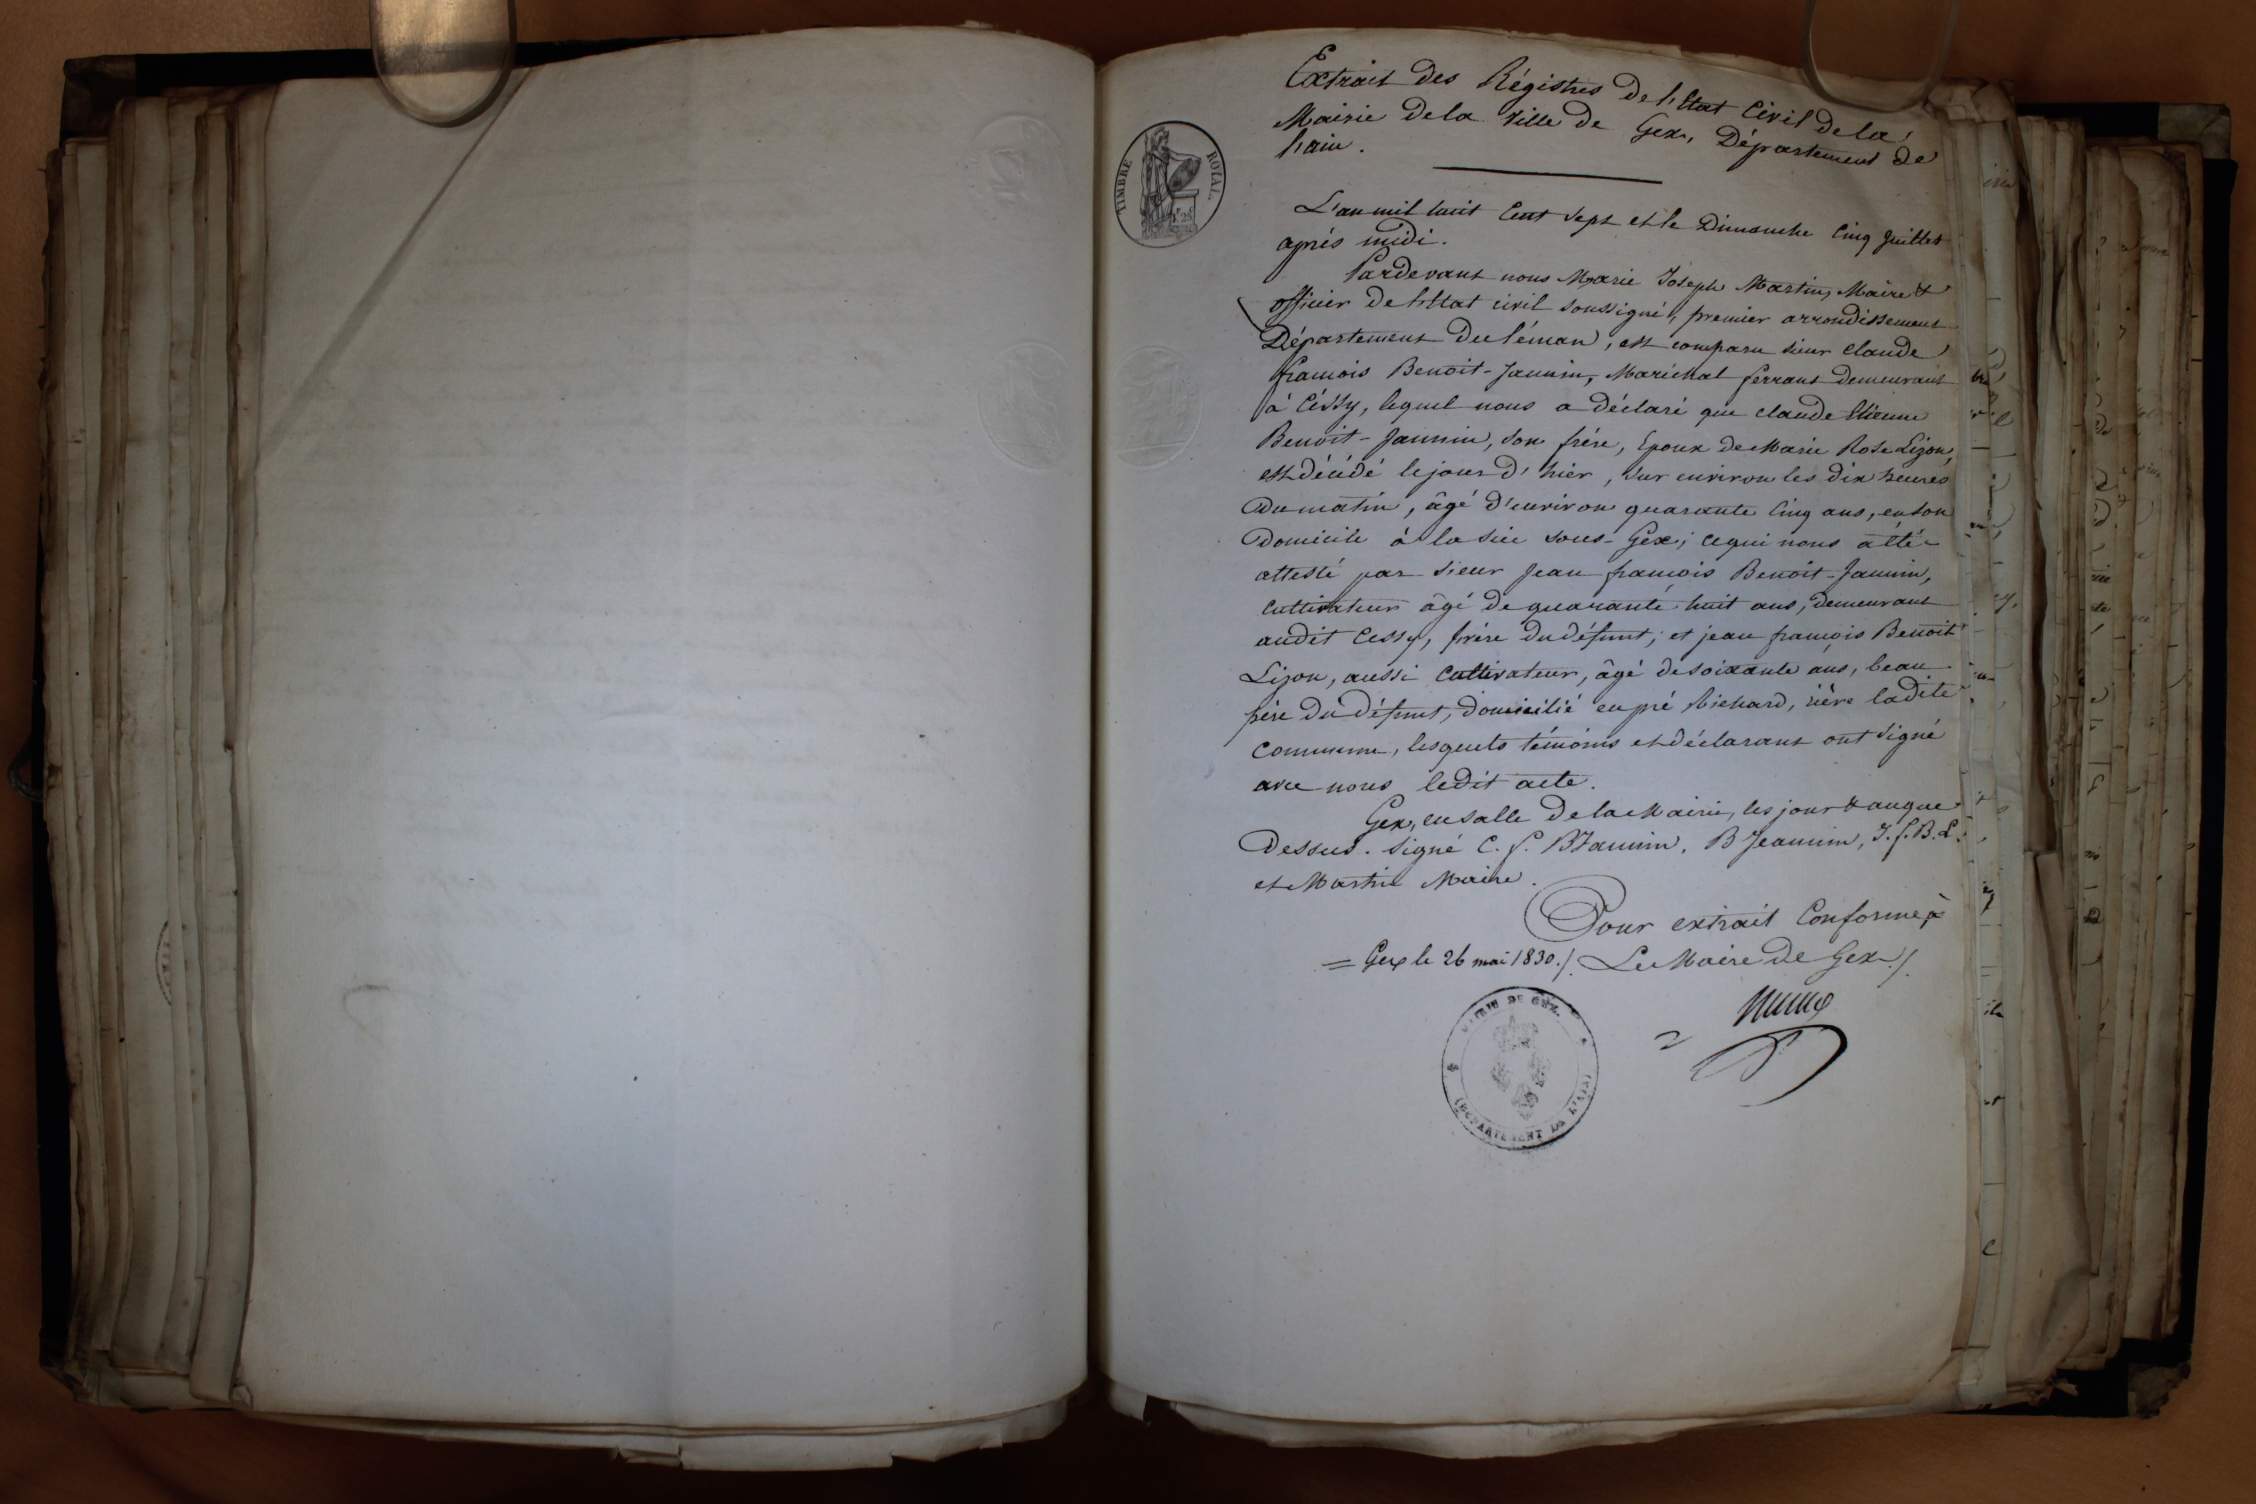 Extrait des Régistres de l'Etat Civil de la
Mairie de la Ville de Gex, Département de
l'ain.
TIMBRE ROYAL
L'an mil huit Cent Sept et le Dimanche Cinq Juillet
après midi.
Pardevant nous Marie Joseph Martin, Maire &
officier de l'Etat civil soussigné, premier arrondissement
Département du Léman, est comparu sieur Claude
françois Benoit-Jannin, Maréchal ferrant demeurant
à Céssy, lequel nous a déclaré que claude Etienne
Benoit-Jannin, son frère, Epoux de Marie Rose Lizon,
est décédé le jour d'hier, sur environ les dix heures
du matin, âgé d'environ quarante cinq ans, en son
Domicile à la sous-Gex; ce qui nous a été
attesté par Sieur Jean françois Benoit-Jannin,
cultivateur âgé de quarante huit ans, demeurant
audit Cessy, frère du défunt; et jean françois Benoit
Lizon, aussi Cultivateur, âgé de soixante ans, beau
père du défunt, domicilié en pré Richard, rière ladite
commune, lesquels témoins et déclarant ont signé
avec nous ledit acte.
Gex, en salle de la Mairie, les jour & an que
dessus. Signé C. f. BJannin, B Jeannin, J. f. B. L.
et Martin Maire.
Pour extrait Conforme à
= Gex le 26 mai 1830./. Le Maire de Gex./.
MAIRIE DE GEX.
(DÉPARTEMENT DE L'AIN)